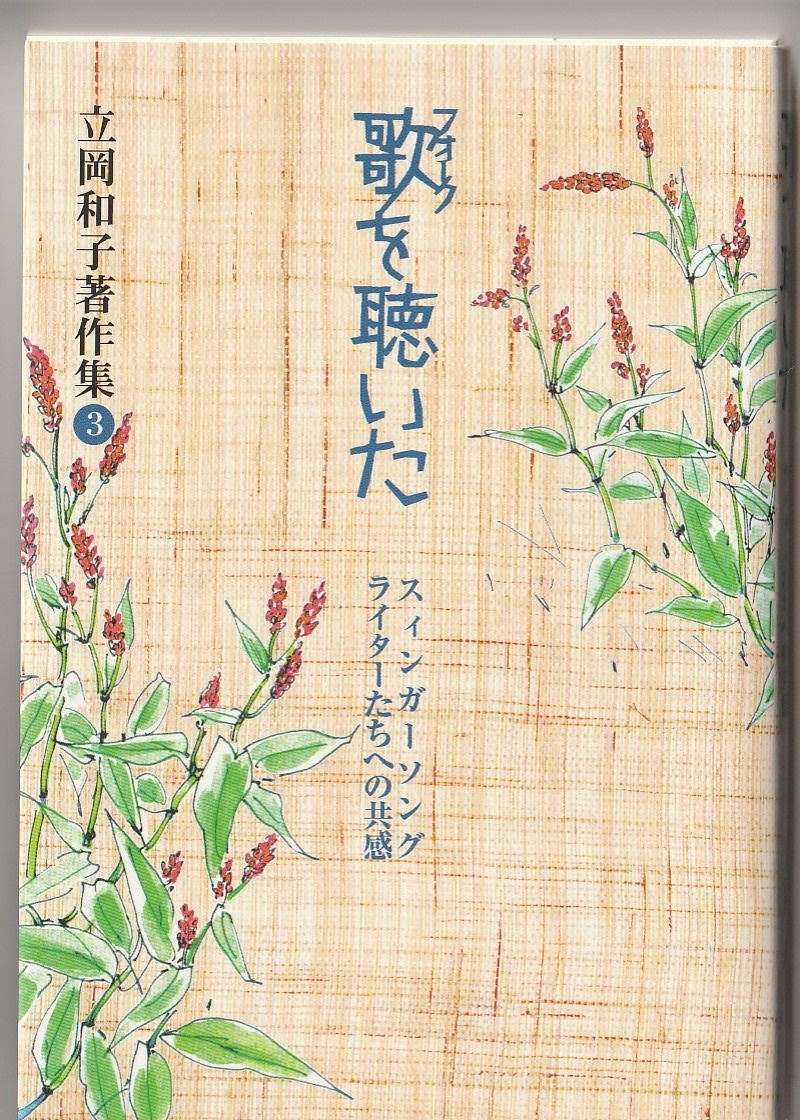 フォーク
歌を聴いた
スィンガーソング
ライターたちへの共感
立岡和子著作集3